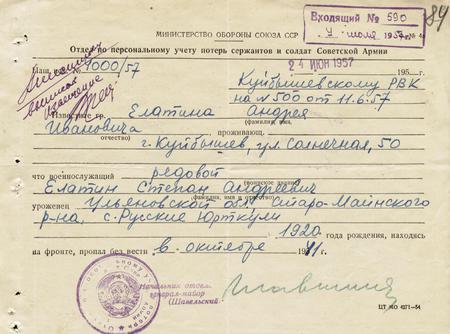 МИНИСТЕРСТВО ОБОРОНЫ СОЮЗА ССР
Входящий № 590
84
июля 1957 г.
Отдел по персональному учету потерь сержантов и солдат Советской Армии
24 ИЮН 1957
195 г.
№ 1000/57
Куйбышевскому РВК
на №500 от 11.6.57
Известите гр. Елатина Андрея
(фамилия, имя,
Ивановича
отчество)
проживающ.
г. Куйбышев, ул. Солнечная, 50
что военнослужащий рядовой
(воинское звание,
Елатин Степан Андреевич
фамилия, имя и отчество)
уроженец Ульяновской обл. Старо-Майнского
р-на, с. Русские Юрткули
1920 года рождения, находясь
на фронте, пропал без вести в октябре 1941г.
Начальник отдел.
генерал-майор
(Шавельский)